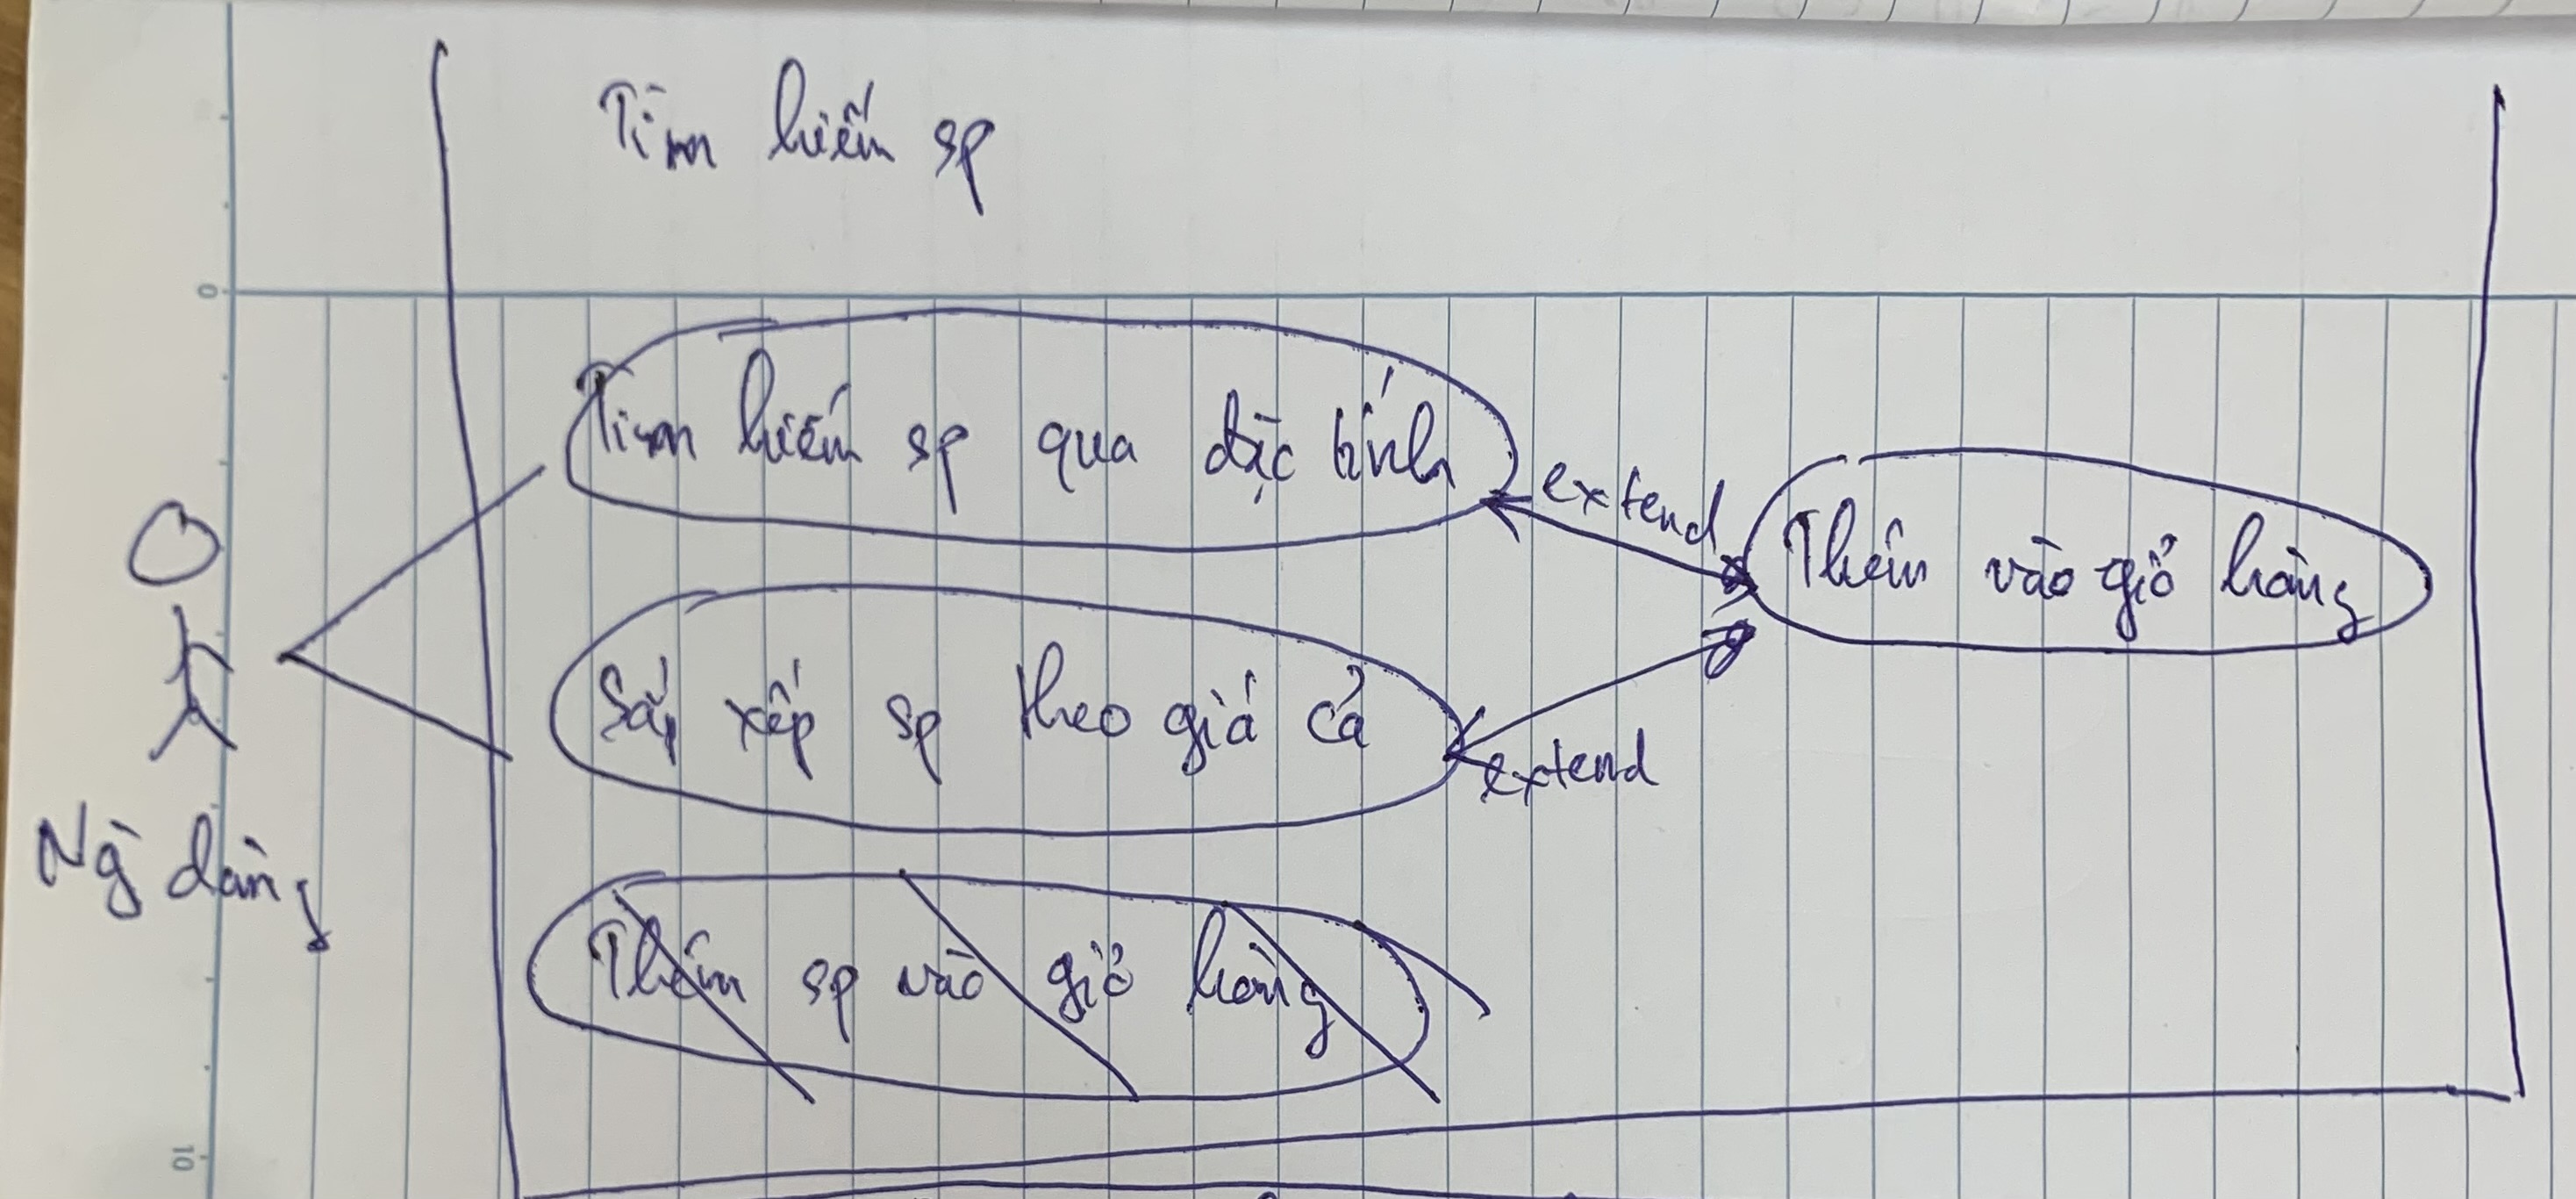 Tìm kiếm sp
Tìm kiếm sp qua đặc tính
extend
Thêm vào giỏ hàng
Sắp xếp sp theo giá cả
extend
Ng dùng
Thêm sp vào giỏ hàng
0
10